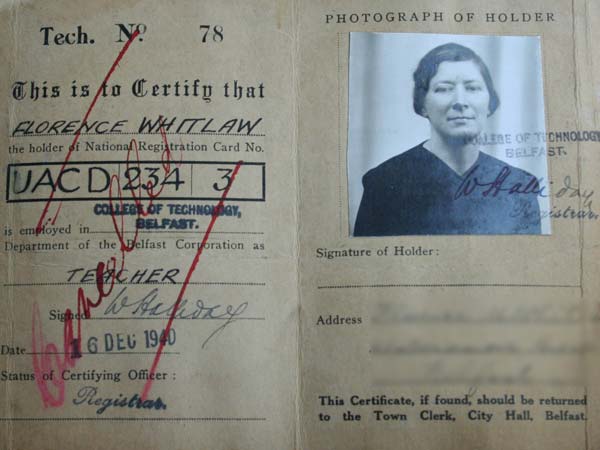 Tech. No. 78
This is to Certify that
FLORENCE WHITLAW
the holder of National Registration Card No.
UACD 234 3
COLLEGE OF TECHNOLOGY,
BELFAST.
is employed in
Department of the Belfast Corporation as
TEACHER
Signed W Halliday
Date 16 DEC 1940
Status of Certifying Officer :
Registrar.
Cancelled
PHOTOGRAPH OF HOLDER
COLLEGE OF TECHNOLOGY
BELFAST.
W Halliday
Registrar.
Signature of Holder :
Address
This Certificate, if found, should be returned
to the Town Clerk, City Hall, Belfast.